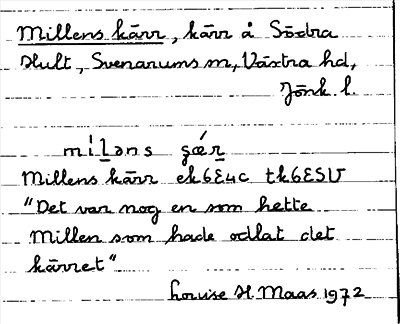 Millens kärr, kärr å Södra
Hult, Svenarums sn, Västra hd,
Jönk l.
Millens kärr ek6E4c tk6E5V
"Det var nog en som hette
Millen som hade odlat det
kärret"
Louise H. Maas 1972